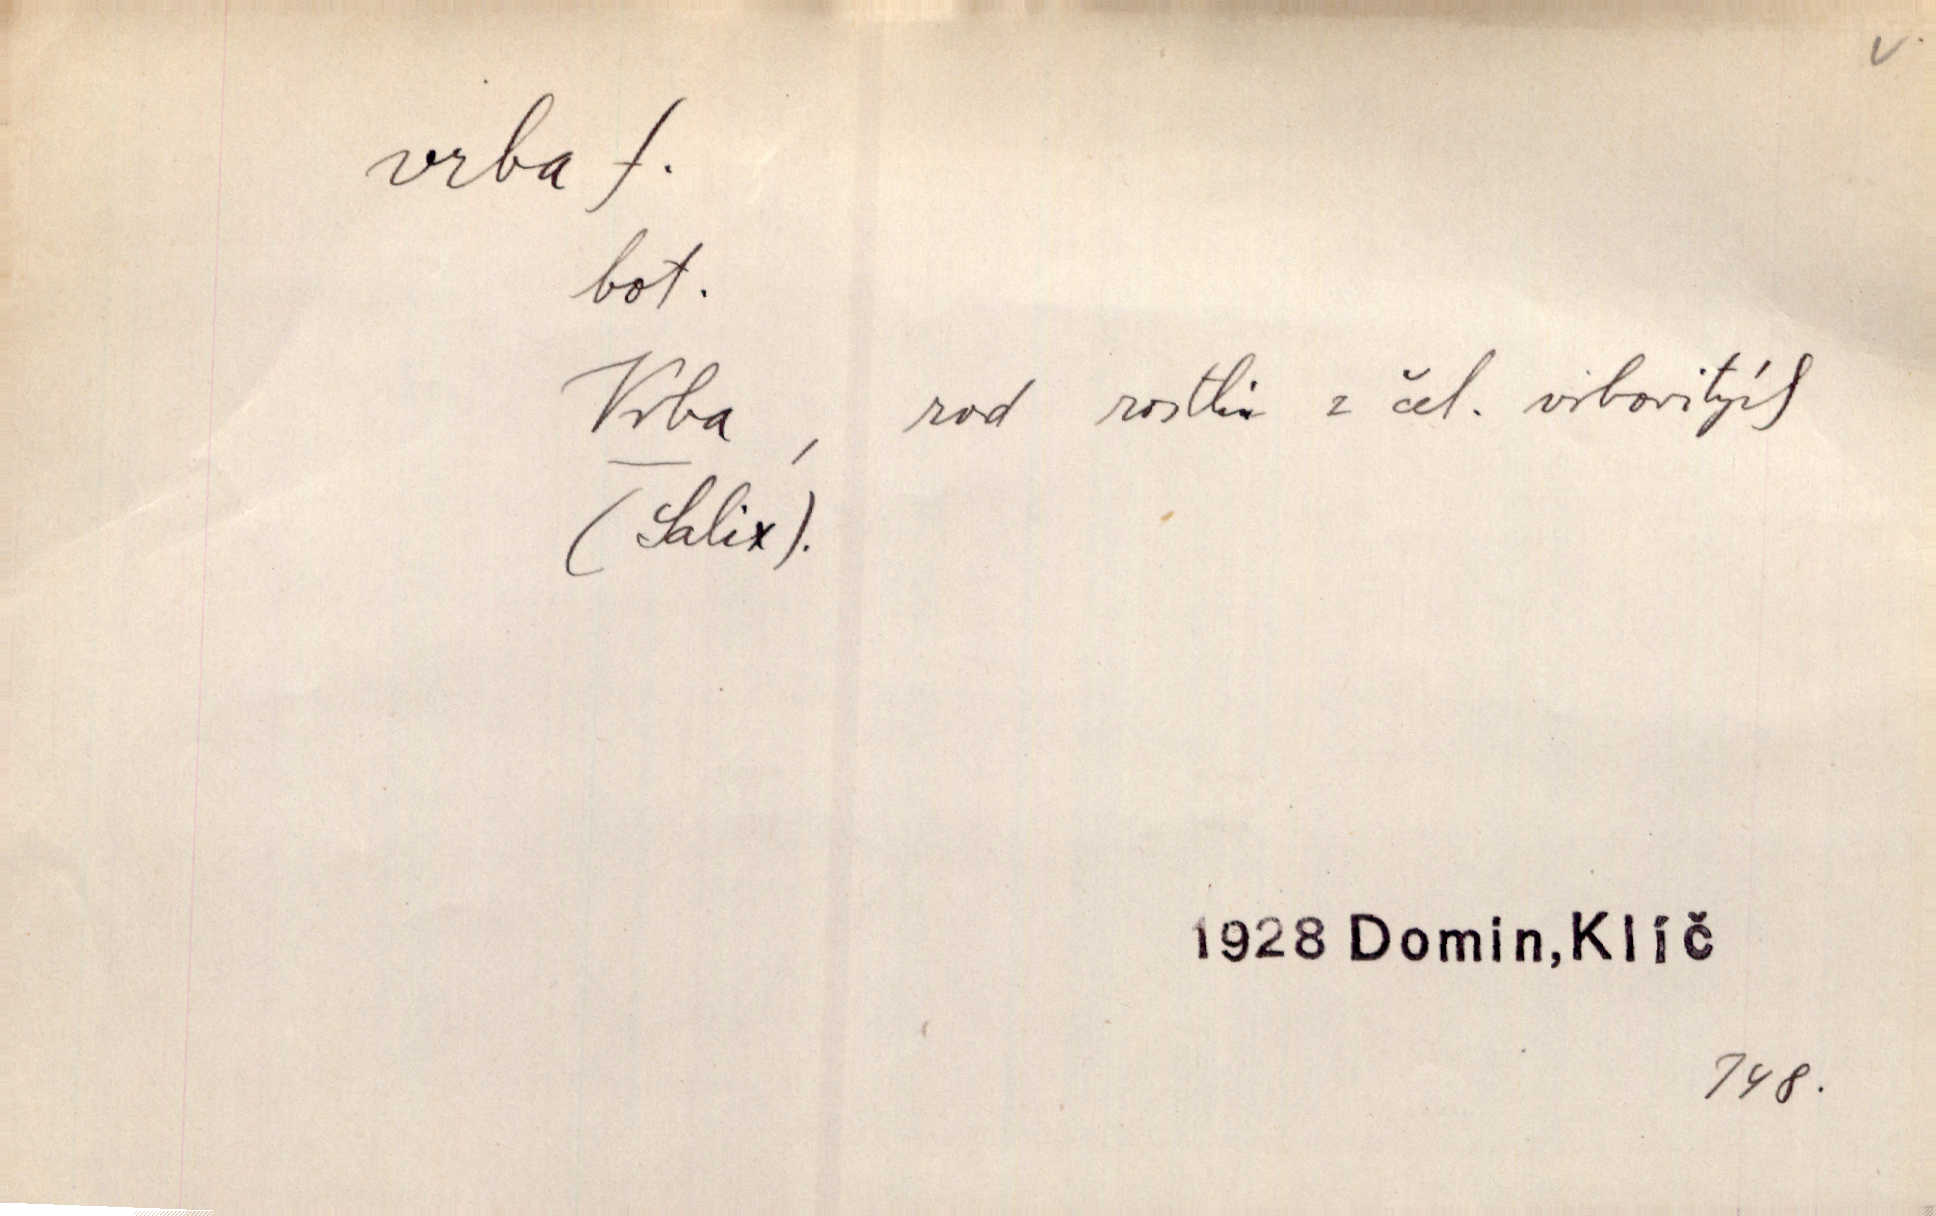 v.
vrba f.
bot.
Vrba, rod rostlin z čel. vrbovitých
(Salix).
1928 Domin, Klíč
748.